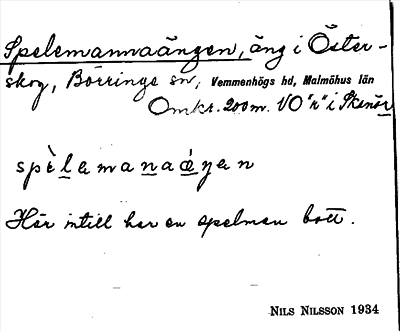 Spelemannaängen, äng i Öster-
skog, Börringe sn, Vemmenhögs hd, Malmöhus län
Omkr. 200 m. VO "r" i
spèlemanaáŋen
Här intill har en spelman bott.
NILS NILSSON 1934